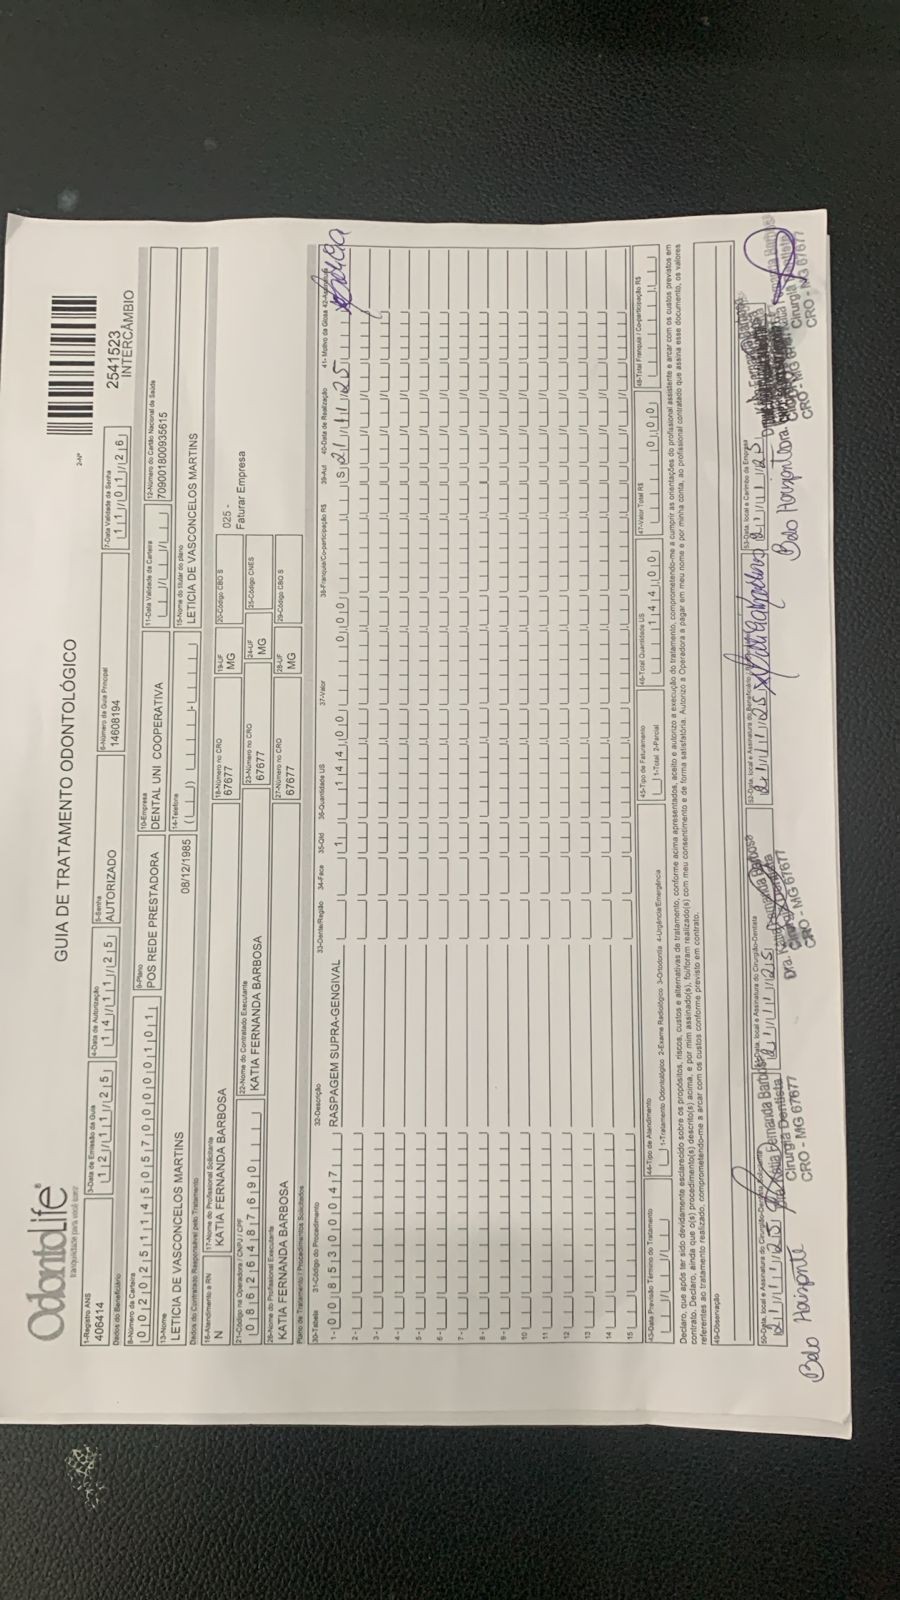 OdontoLife®
tranquilidade para você sorrir
GUIA DE TRATAMENTO ODONTOLÓGICO
2-Nº
2541523
INTERCÂMBIO
1-Registro ANS
406414
3-Data de Emissão da Guia
12/11/25
4-Data de Autorização
14/11/25
5-Senha
AUTORIZADO
6-Número da Guia Principal
14608194
7-Data Validade da Senha
11/01/26
Dados do Beneficiário
8-Número da Carteira
00202511450570000101
9-Plano
POS REDE PRESTADORA
10-Empresa
DENTAL UNI COOPERATIVA
11-Data Validade da Carteira
12-Número do Cartão Nacional de Saúde
709001800935615
13-Nome
LETICIA DE VASCONCELOS MARTINS
08/12/1985
14-Telefone
15-Nome do titular do plano
LETICIA DE VASCONCELOS MARTINS
Dados do Contratado Responsável pelo Tratamento
16-Atendimento a RN
N
17-Nome do Profissional Solicitante
KATIA FERNANDA BARBOSA
18-Número no CRO
67677
19-UF
MG
20-Código CBO S
025 -
Faturar Empresa
21-Código na Operadora / CNPJ / CPF
08626487690
22-Nome do Contratado Executante
KATIA FERNANDA BARBOSA
23-Número no CRO
67677
24-UF
MG
25-Código CNES
26-Nome do Profissional Executante
KATIA FERNANDA BARBOSA
27-Número no CRO
67677
28-UF
MG
29-Código CBO S
Plano de Tratamento / Procedimentos Solicitados
30-Tabela 31-Código do Procedimento 32-Descrição 33-Dente/Região 34-Face 35-Qtd 36-Quantidade US 37-Valor 38-Franquia/Co-participação R$ 39-Aut 40-Data de Realização 41- Motivo da Glosa 42-Assinatura
1- 00 85300047 RASPAGEM SUPRA-GENGIVAL 1 144,00 0,00 S 21/11/25
2 -
3 -
4 -
5 -
6 -
7 -
8 -
9 -
10
11
12
13
14
15
43-Data Previsão Término do Tratamento
44-Tipo de Atendimento
1-Tratamento Odontológico 2-Exame Radiológico 3-Ortodontia 4-Urgência/Emergência
45-Tipo de Faturamento
1-Total 2-Parcial
46-Total Quantidade US
144,00
47-Valor Total R$
0,00
48-Total Franquia / Co-participação R$
Declaro, que após ter sido devidamente esclarecido sobre os propósitos, riscos, custos e alternativas de tratamento, conforme acima apresentados, aceito e autorizo a execução do tratamento, comprometendo-me a cumprir as orientações do profissional assistente e arcar com os custos previstos em
contrato. Declaro, ainda que o(s) procedimento(s) descrito(s) acima, e por mim assinado(s), foi/foram realizado(s) com meu consentimento e de forma satisfatória. Autorizo a Operadora a pagar em meu nome e por minha conta, ao profissional contratado que assina esse documento, os valores
referentes ao tratamento realizado, comprometendo-me a arcar com os custos conforme previsto em contrato.
49-Observação
50-Data, local e Assinatura do Cirurgião-Dentista Solicitante
21/11/25
Dra. Kátia Fernanda Barbosa
Cirurgiã Dentista
CRO - MG 67677
Belo Horizonte
51-Data, local e Assinatura do Cirurgião-Dentista
21/11/25
Dra. Kátia Fernanda Barbosa
Cirurgiã Dentista
CRO - MG 67677
52-Data, local e Assinatura do Beneficiário
21/11/25
53-Data, local e Carimbo da Empresa
21/11/25
Belo Horizonte
Cirurgiã Dentista
CRO - MG 67677